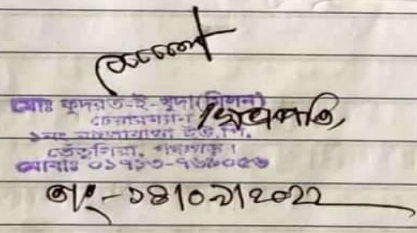 মোঃ কুদরত-ই-খুদা (মিলন)
চেয়ারম্যান
১নং বাংলাবান্ধা ইউ,পি,
তেঁতুলিয়া, পঞ্চগড়।
মোবাঃ ০১৭১৩-৭৬৯০৫৬
তাং-১৪/০৯/২০২২